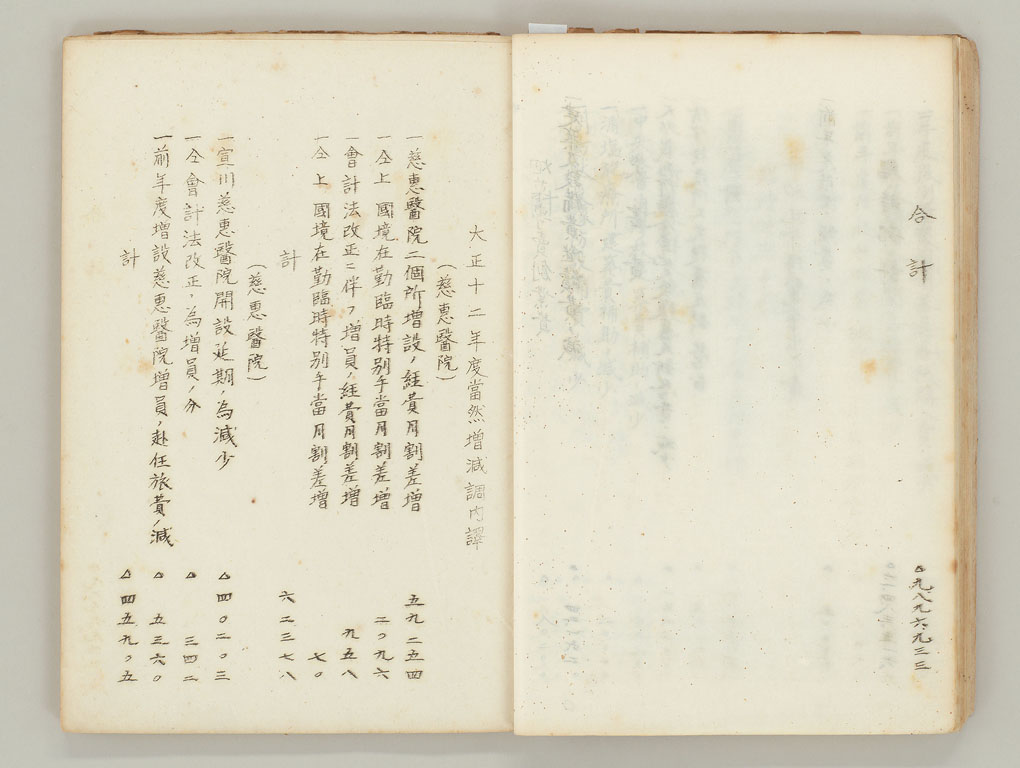 合計 △九八九六九三三
大正十二年度當然増減調内譯
(慈惠醫院)
一慈惠醫院二個所増設ノ經費月割差増 五九二五四
一仝上國境在勤臨時特別手當月割差増 二〇九六
一會計法改正ニ伴フ増員ノ經費月割差増 九五八
一仝上國境在勤臨時特別手當月割差増 七〇
計 六二三七八
(慈惠醫院)
一宣川慈惠醫院開設延期ノ為減少 △四〇二〇三
一仝會計法改正ノ為増員ノ分 △三四二
一前年度増設慈惠醫院増員ノ赴任旅費ノ減 △五三六〇
計 △四五九〇五